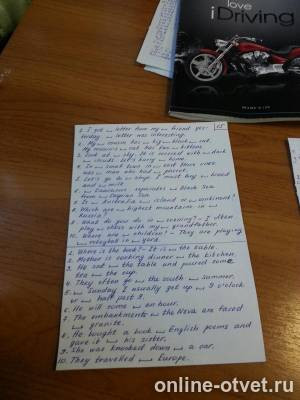 love
iDriving
25
1. I got _ letter from my _ friend yes-
terday. _ letter was interesting.
2. My _ cousin has _ big _ black _ cat.
My cousin's _ cat has two _ kittens.
3. Look at _ sky. It is covered with _ dark
_ clouds. Let's hurry _ home.
4. In _ small town in _ East there
was _ man who had _ parrot.
5. Let's go to _ shop. I must buy _ bread
and _ milk
6. _ Caucasus separates _ Black Sea
from _ Caspian Sea.
7. Is _ Australia _ island or _ continent?
8. Which are _ highest mountains in _
Russia
9. What do you do in _ evening? - I often
play _ chess with my _ grandfather.
10. Where are _ children? - They are playing
_ volleyball in _ yard.
1. Where is the book? - It is _ the table.
2. Mother is cooking dinner _ the kitchen.
3. He sat _ the table and poured some
tea _ the cup.
4. They often go _ the south _ summer.
5. _ Sunday I usually get up _ 9 o'clock
or _ half past 9.
6. He will come _ an hour.
7. The embankments _ the Neva are faced
_ granite.
8. He bought a book _ English poems and
gave it _ his sister.
9. She was knocked down _ a car.
10. They travelled _ Europe.
online-otvet.ru